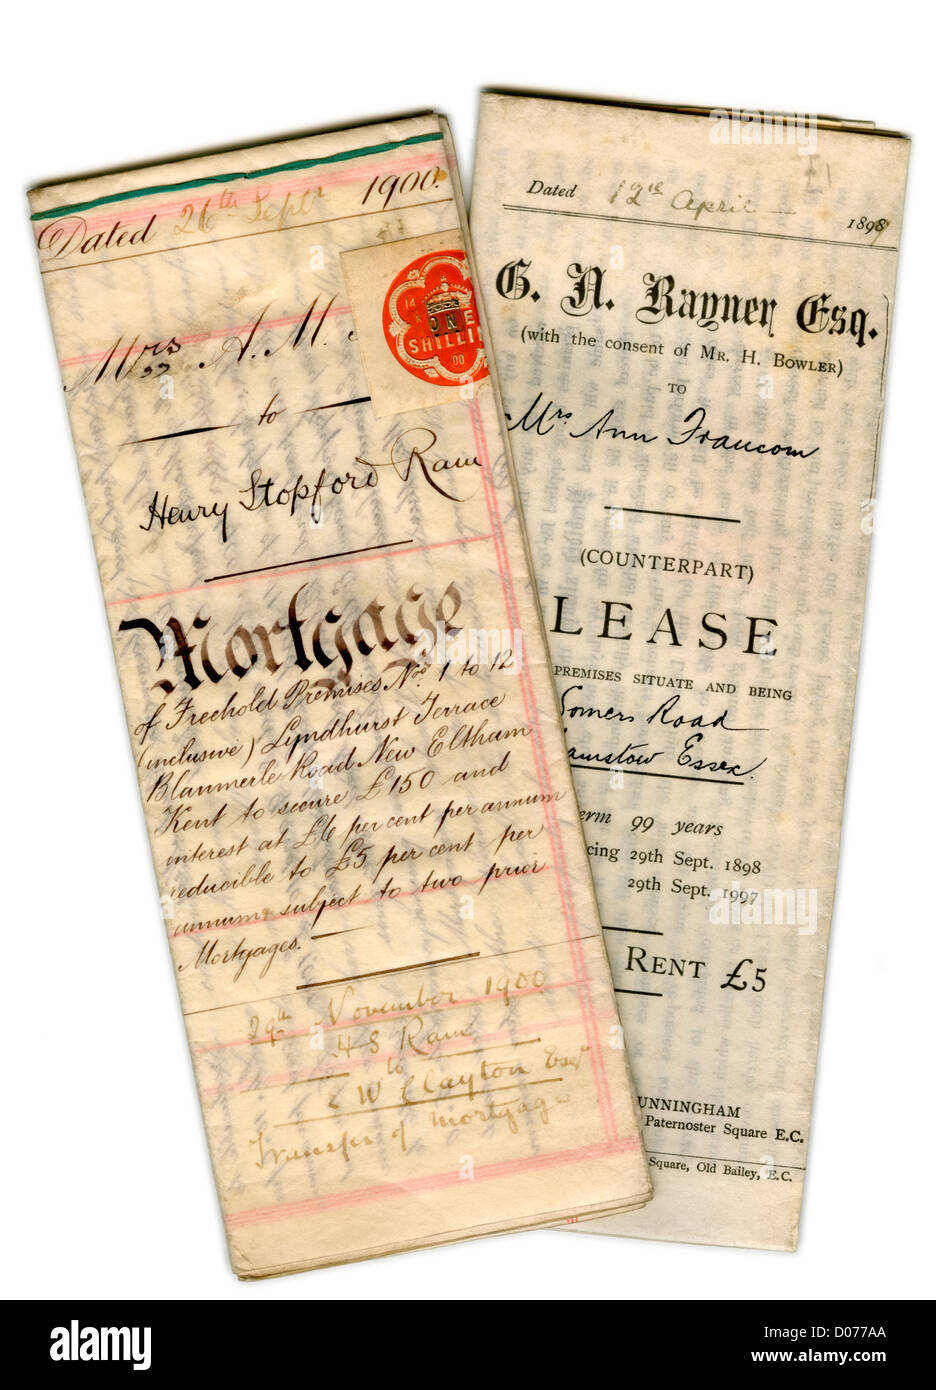 Dated 26th Septr 1900.
Mrs A. M.
ONE
SHILLIN
00
to
Henry Stopford Ram
Mortgage
of Freehold Premises Nos. 1 to 12
(inclusive) Lyndhurst Terrace
Blanmerle Road New Eltham
Kent to secure £150 and
interest at £6 per cent per annum
reducible to £5 per cent per
annum subject to two prior
Mortgages.
29th November 1900
H S Ram
to
C W Clayton Esqr
Transfer of mortgage
£1
Dated 12th April
1899
G. A. Rayner Esq.
(with the consent of MR. H. BOWLER)
TO
Mrs Ann Francom
(COUNTERPART)
LEASE
PREMISES SITUATE AND BEING
Somers Road
hamstow Essex.
erm 99 years
cing 29th Sept. 1898
29th Sept. 1997
RENT £5
UNNINGHAM
Paternoster Square E.C.
Square, Old Bailey, E.C.
alamy
alamy
alamy
alamy
Image ID: D077AA
www.alamy.com